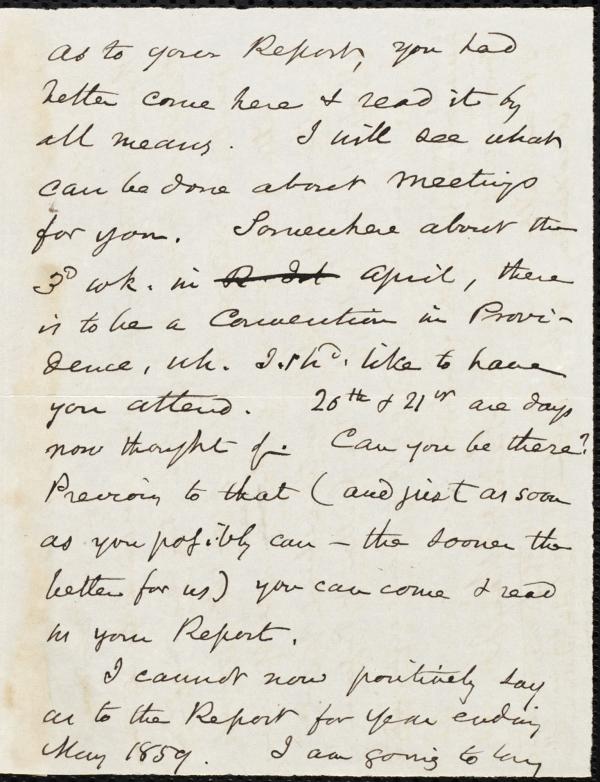 as to your Report, you had
better come here & read it by
all means. I will see what
can be done about meetings
for you. Somewhere about the
3d wk. in April, there
is to be a Convention in Provi-
dence, wh. I shd. like to have
you attend. 20th & 21st are days
now thought of. Can you be there?
Previous to that (and just as soon
as you possibly can - the sooner the
better for us) you can come & read
in your Report.
I cannot now positively say
as to the Report for year ending
May 1859. I am going to try